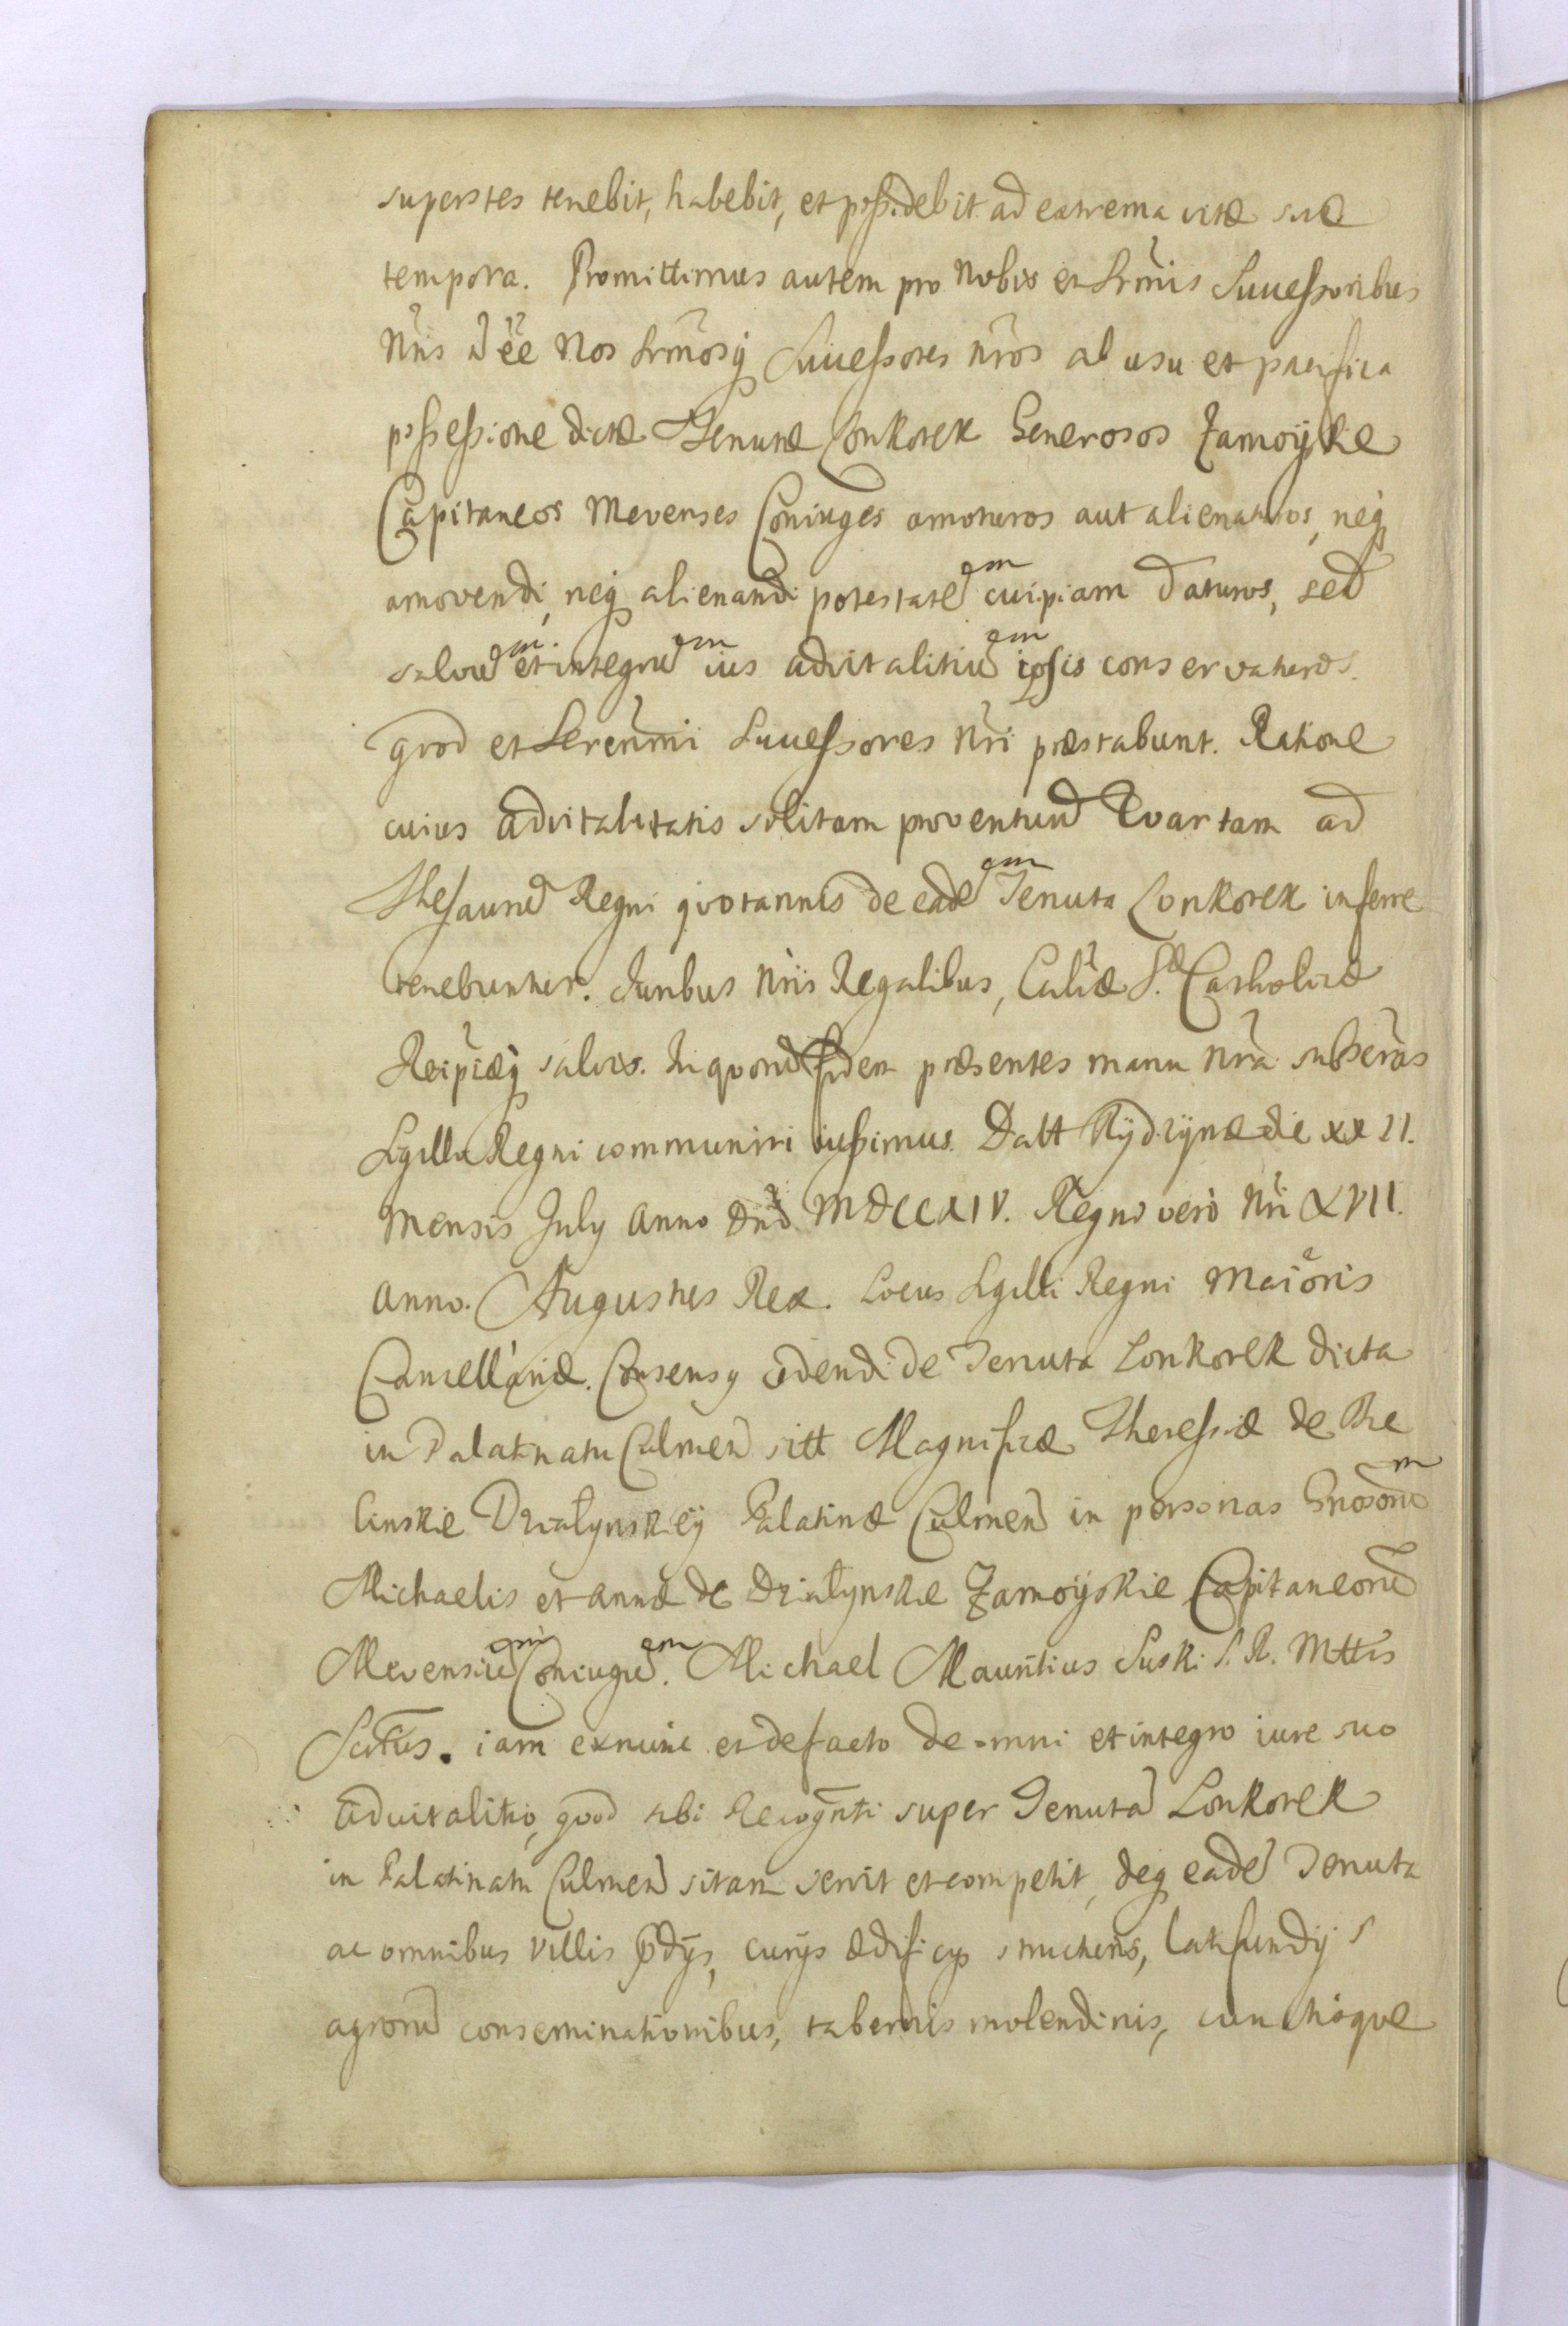 superstes tenebit, habebit, et possidebit ad extrema vitæ suæ
tempora. Promittimus autem pro Nobis et Srmis Successoribus
Nris Nee Nos Srmosq Successores nros ab usu et pacifica
possessione dictæ Tenutæ Lonkorek Generosos Zamoyskie
Capitaneos Mevenses Coniuges amoturos aut alienaturos, neq
amovendi, neq alienandi potestatem cuipiam daturos, sed
salvum et integrum ius advitalitium ipsis conservaturos.
quod et Serenmi Successores Nri præstabunt. Ratione
cuius advitalitatis solitam proventuum Quartam ad
Thesaurum Regni quotannis de eadem Tenuta Lonkorek inferre
tenebuntur. Juribus Nris Regalibus, S. Catholicæ
Reipcæq salvis. In quorum fidem præsentes manu Nra subscras
Sgillo Regni communiri iussimus. Datt Rydzynæ die XXII.
Mensis July Anno Dni MDCCXIV. Regno vero Nri XVII.
anno. Augustus Rex. Locus Sgilli Regni Maioris
Cancellariæ. Consensq cedendi de Tenuta Lonkorek dicta
in Palatinatu Culmen sitt Magnificæ Theressiæ de Bie
linskie Działynskiey Palatinæ Culmen in personas Gnosorum
Michaelis et Annæ de Działynskie Zamoyskie Capitaneorum
Mevensium Coniugum. Michael Mauritius Suski S. R. Mttis
Scrtus. iam exnunc et defacto de omni et integro iure suo
advitalitio, quod sibi Recognti super Tenuta Lonkorek
in Palatinatu Culmen sitam servit et competit, deq eade Tenuta
ac omnibus villis pdys, curys ædificys structuris, latifundijs
agrorum conseminationibus, tabernis molendinis, cunctisque